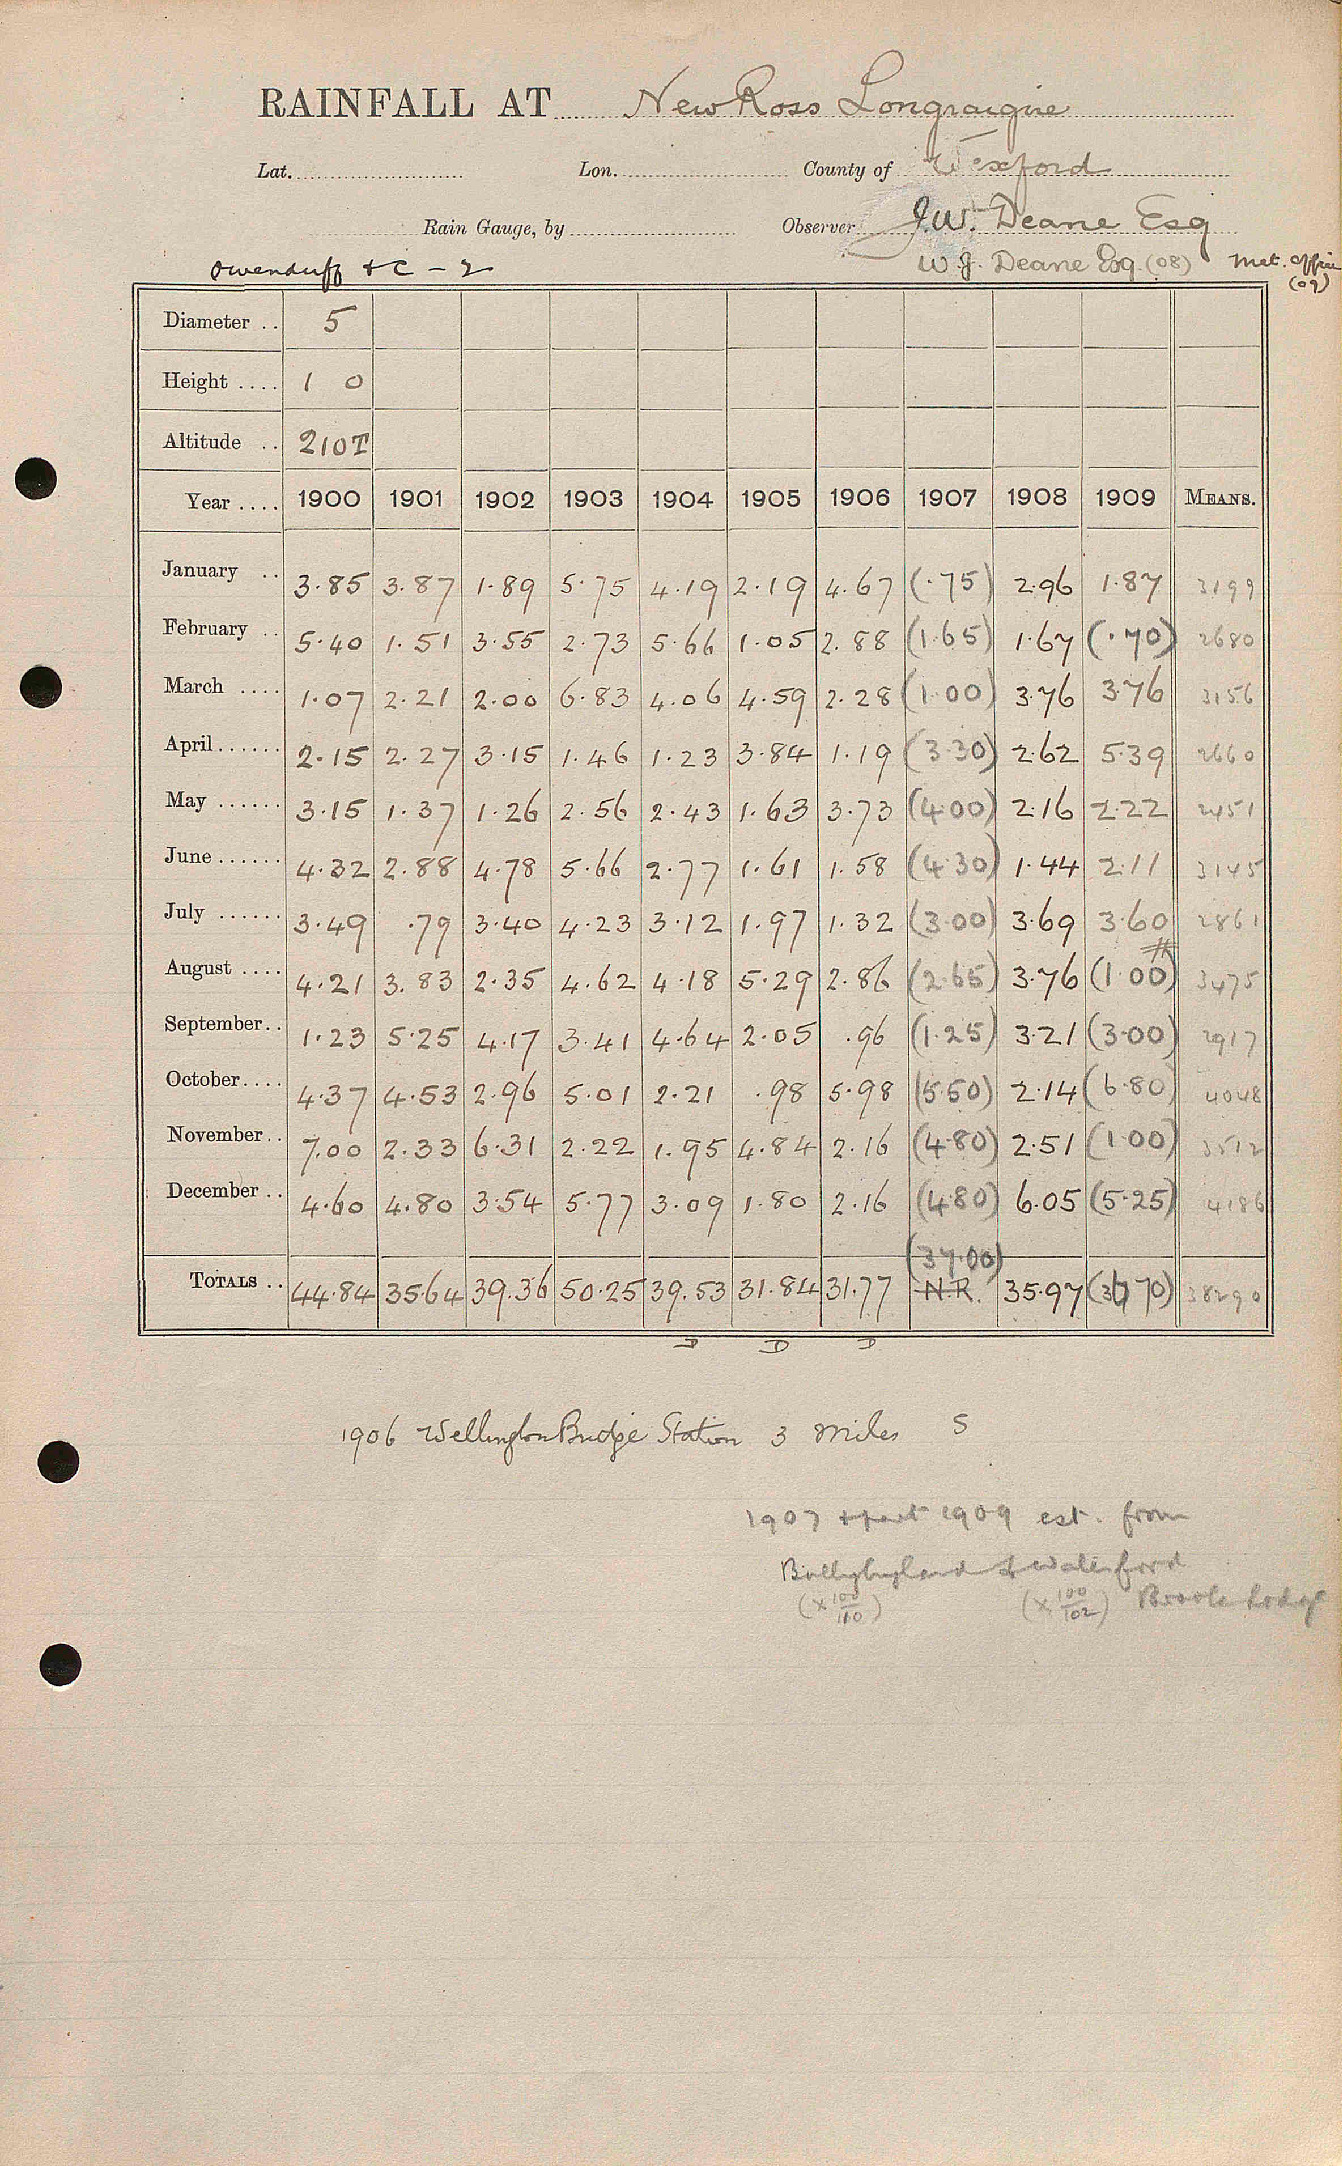 RAINFALL AT New Ross Longraigue
Lat. Lon. County of Wexford
Rain Gauge, by Observer J.W. Deane Esq
Owenduff & C - 2 W J. Deane Esq. (08) Met. Office (09)
Diameter .. 5
Height .... 1 0
Altitude .. 210T
Year .... 1900 1901 1902 1903 1904 1905 1906 1907 1908 1909 MEANS.
January .. 3.85 3.87 1.89 5.75 4.19 2.19 4.67 (.75) 2.96 1.87 3199
February .. 5.40 1.51 3.55 2.73 5.66 1.05 2.88 (1.65) 1.67 (.70) 2680
March .... 1.07 2.21 2.00 6.83 4.06 4.59 2.28 (1.00) 3.76 3.76 3156
April...... 2.15 2.27 3.15 1.46 1.23 3.84 1.19 (3.30) 2.62 5.39 2660
May ...... 3.15 1.37 1.26 2.56 2.43 1.63 3.73 (4.00) 2.16 2.22 2451
June ...... 4.32 2.88 4.78 5.66 2.77 1.61 1.58 (4.30) 1.44 2.11 3145
July ...... 3.49 .79 3.40 4.23 3.12 1.97 1.32 (3.00) 3.69 3.60 2861
August .... 4.21 3.83 2.35 4.62 4.18 5.29 2.86 (2.65) 3.76 (1.00) 3475
September.. 1.23 5.25 4.17 3.41 4.64 2.05 .96 (1.25) 3.21 (3.00) 2917
October.... 4.37 4.53 2.96 5.01 2.21 .98 5.98 (5.50) 2.14 (6.80) 4048
November.. 7.00 2.33 6.31 2.22 1.95 4.84 2.16 (4.80) 2.51 (1.00) 3512
December .. 4.60 4.80 3.54 5.77 3.09 1.80 2.16 (4.80) 6.05 (5.25) 4186
(37.00)
TOTALS .. 44.84 35.64 39.36 50.25 39.53 31.84 31.77 N.R. 35.97 (36.70) 38290
D D D
1906 Wellington Bridge Station 3 Miles S
1907 & part 1909 est. from
Ballyhyland & Waterford
(×100/110) (×100/102) Brook Lodge